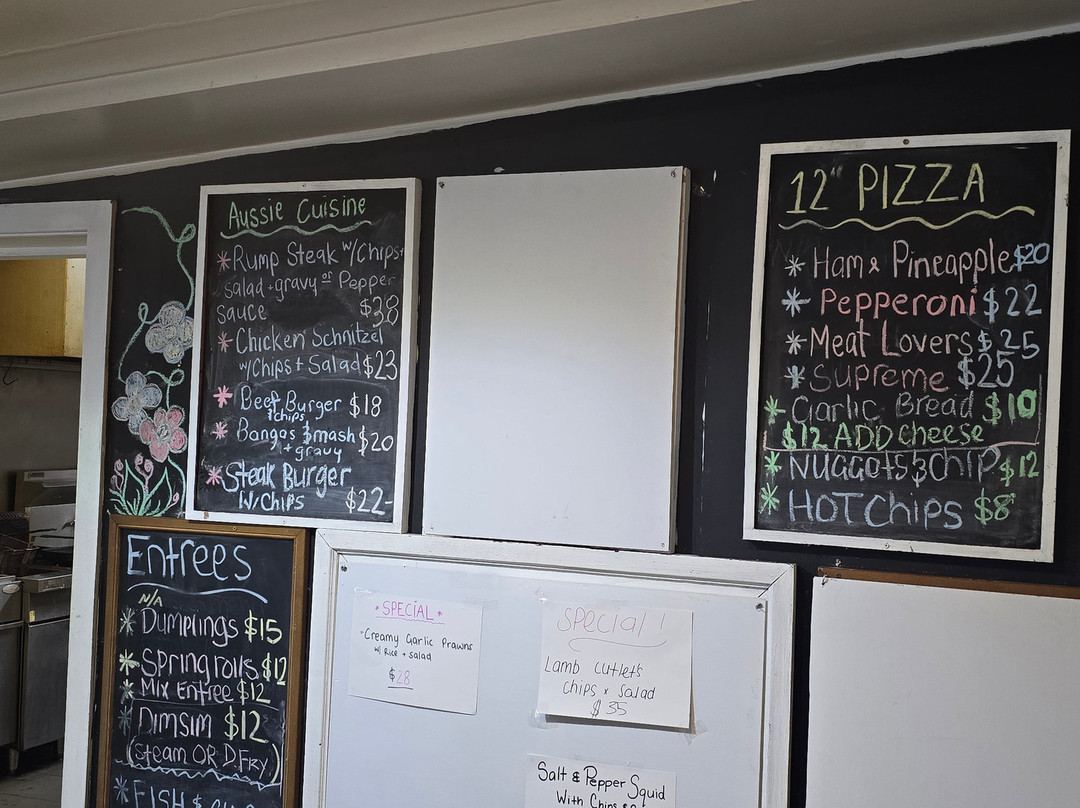 Aussie Cuisine
* Rump Steak w/Chips+
salad+gravy or Pepper
sauce $38
* Chicken Schnitzel
w/Chips + Salad $23
* Beef Burger $18
& chips
* Bangas & mash $20
+ gravy
* Steak Burger
W/Chips $22-
12" PIZZA
* Ham & Pineapple $20
* Pepperoni $22
* Meat Lovers $25
* Supreme $25
* Garlic Bread $10
$12 ADD cheese
* Nuggets & chip $12
* HOT Chips $8
Entrees
N/A
* Dumplings $15
* Spring rolls $12
* Mix Entree $12
* Dimsim $12
(Steam OR D.Fry)
* FISH &
* SPECIAL *
*Creamy Garlic Prawns
w/ Rice + salad
$28
Special !
Lamb cutlets
chips & salad
$35
Salt & Pepper Squid
With Chips